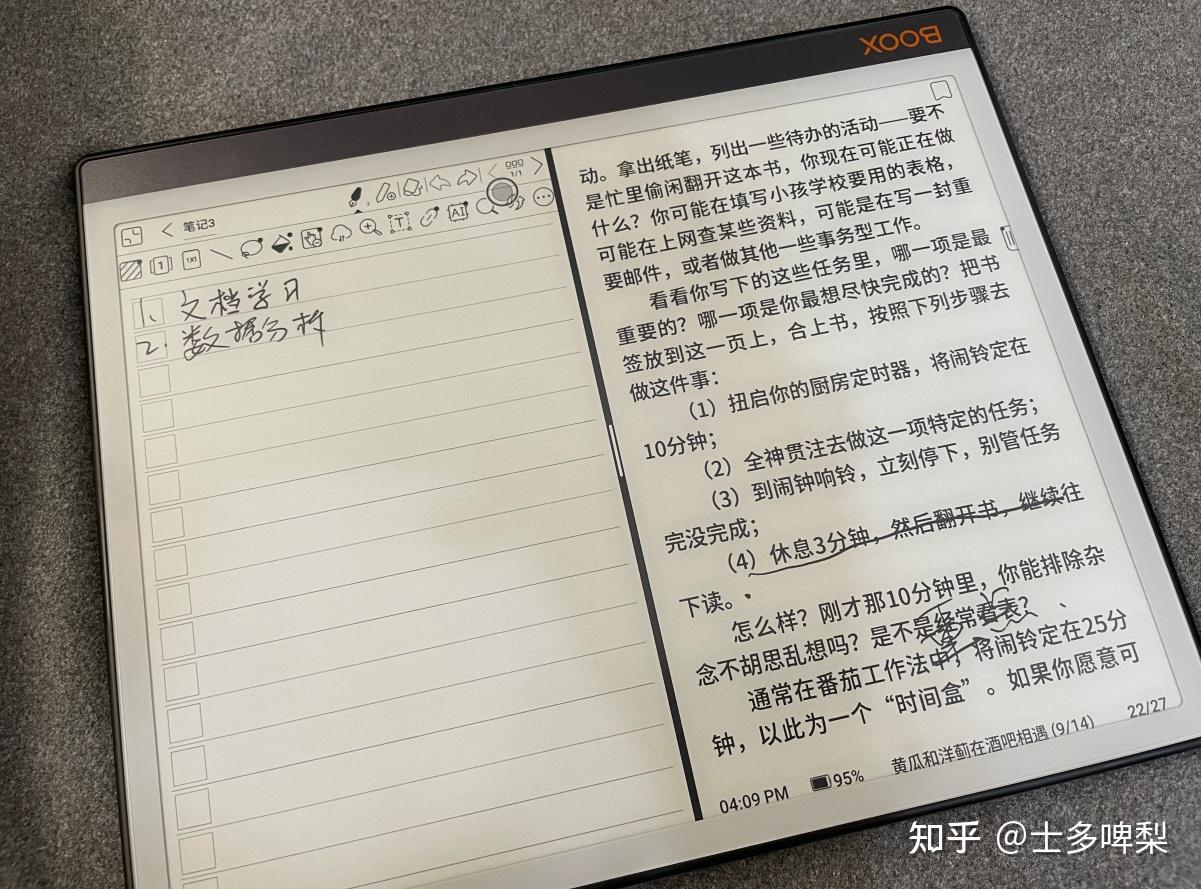 BOOX
笔记3
1/1
1
1X1
T
AI
1. 文档学习
2. 数据分析
动。拿出纸笔，列出一些待办的活动——要不
是忙里偷闲翻开这本书，你现在可能正在做
什么？你可能在填写小孩学校要用的表格，
可能在上网查某些资料，可能是在写一封重
要邮件，或者做其他一些事务型工作。
看看你写下的这些任务里，哪一项是最
重要的？哪一项是你最想尽快完成的？把书
签放到这一页上，合上书，按照下列步骤去
做这件事：
（1）扭启你的厨房定时器，将闹铃定在
10分钟；
（2）全神贯注去做这一项特定的任务；
（3）到闹钟响铃，立刻停下，别管任务
完没完成；
（4）休息3分钟，然后翻开书，继续往
下读。
怎么样？刚才那10分钟里，你能排除杂
念不胡思乱想吗？是不是经常看表？
通常在番茄工作法中，将闹铃定在25分
钟，以此为一个“时间盒”。如果你愿意可
04:09 PM 95% 黄瓜和洋蓟在酒吧相遇 (9/14) 22/27
知乎 @士多啤梨